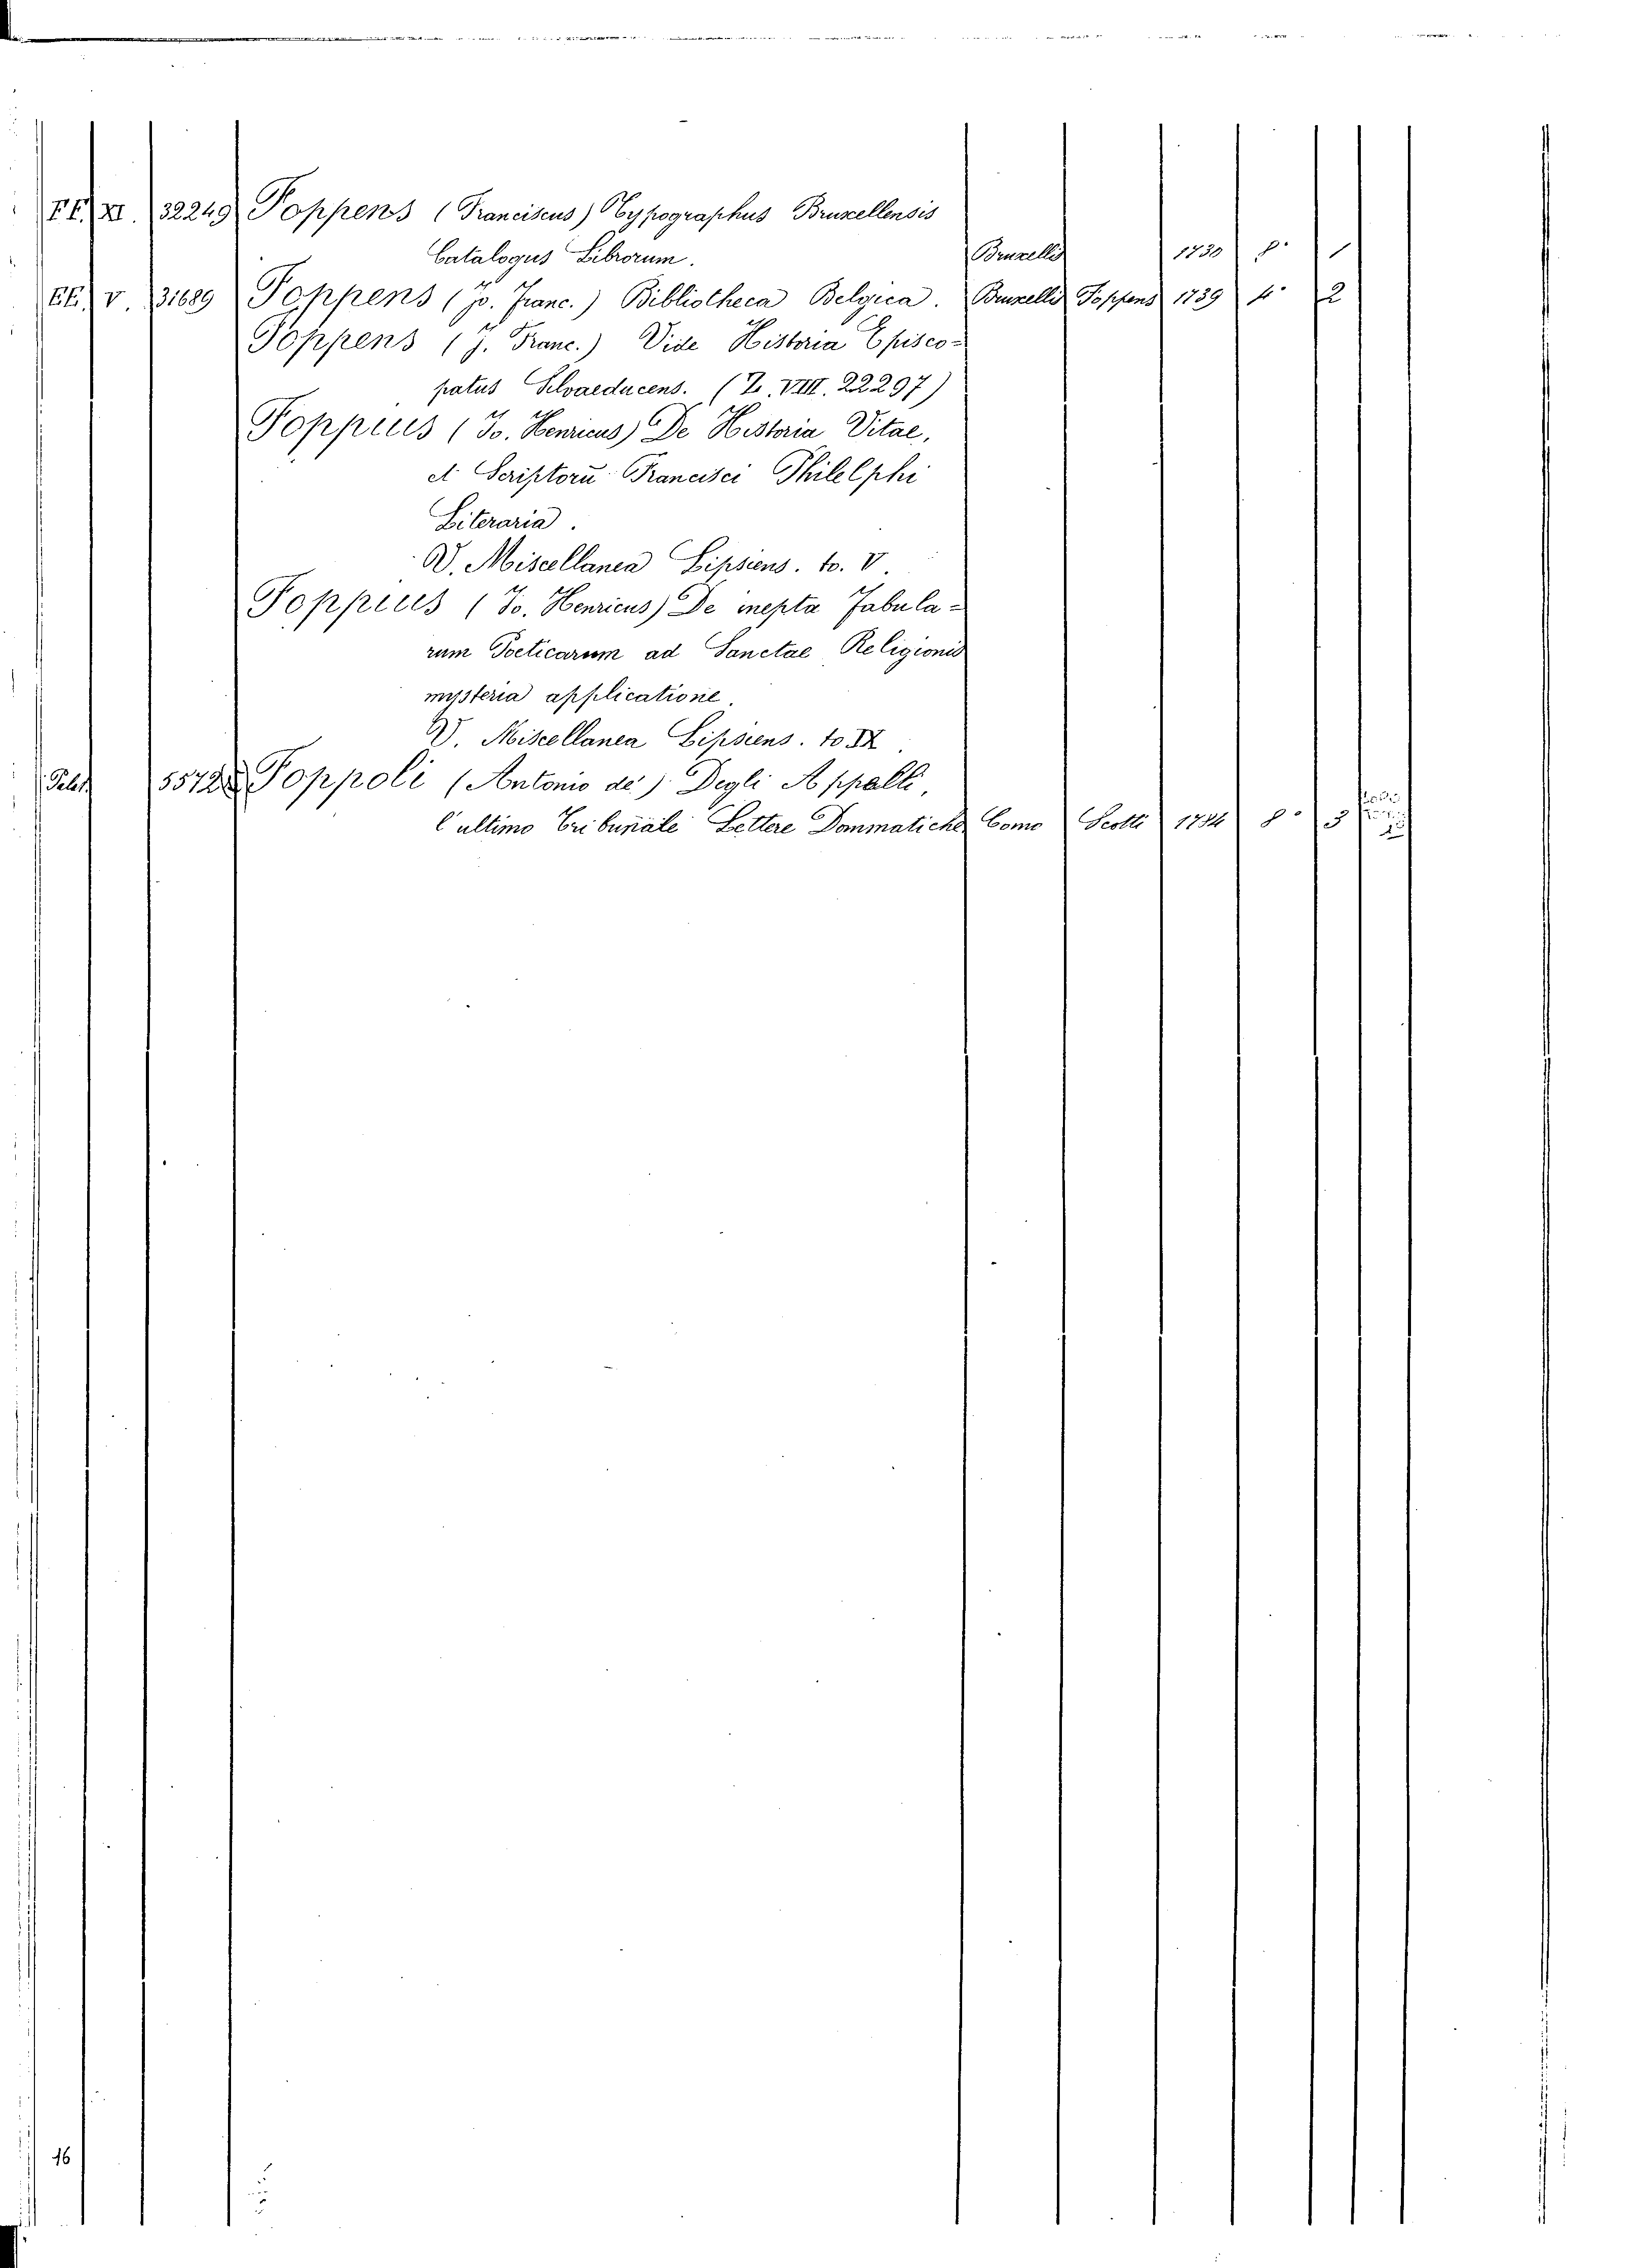 FF. XI. 32249 Foppens (Franciscus) Typographus Bruxellensis
Catalogus Librorum. Bruxellis 1730 8° 1
EE. V. 31689 Foppens (Jo. Franc.) Bibliotheca Belgica. Bruxellis Foppens 1739 4° 2
Foppens (J. Franc.) Vide Historia Episco-
patus Silvaeducens. (Z. VIII. 22297)
Foppius (Jo. Henricus) De Historia Vitae,
et Scriptorū Francisci Philelphi
Literaria.
V. Miscellanea Lipsiens. to. V.
Foppius (Jo. Henricus) De inepta Fabula-
rum Poeticarum ad Sanctae Religionis
mysteria applicatione.
V. Miscellanea Lipsiens. to IX.
Foppoli (Antonio de') Degli Appalli,
l'ultimo Tribunale Lettere Dommatiche Como Scotti 1784 8° 3
16